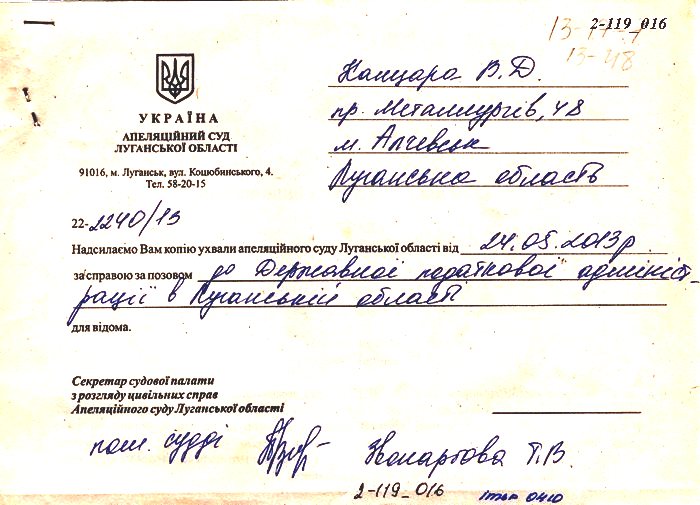 2-119_016
13-48
Канцара В.Д.
УКРАЇНА
АПЕЛЯЦІЙНИЙ СУД
ЛУГАНСЬКОЇ ОБЛАСТІ
пр. Металлургів, 48
м. Алчевськ
91016, м. Луганськ, вул. Коцюбинського, 4.
Тел. 58-20-15
Луганська область
22-2240/13
Надсилаємо Вам копію ухвали апеляційного суду Луганської області від 24.05.2013р
за справою за позовом до Державної податкової адмініст-
рації в Луганській області
для відома.
Секретар судової палати
з розгляду цивільних справ
Апеляційного суду Луганської області
пом. судді
Т.В.
2-119_016